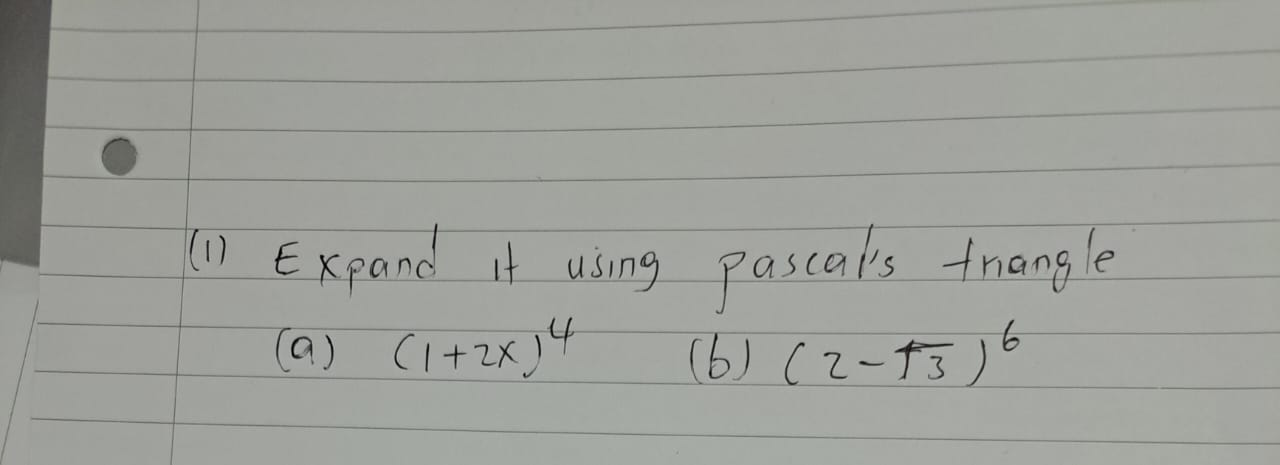 (1) Expand it using pascal's triangle
(a) (1+2x)^4 (b) (2-√3)^6